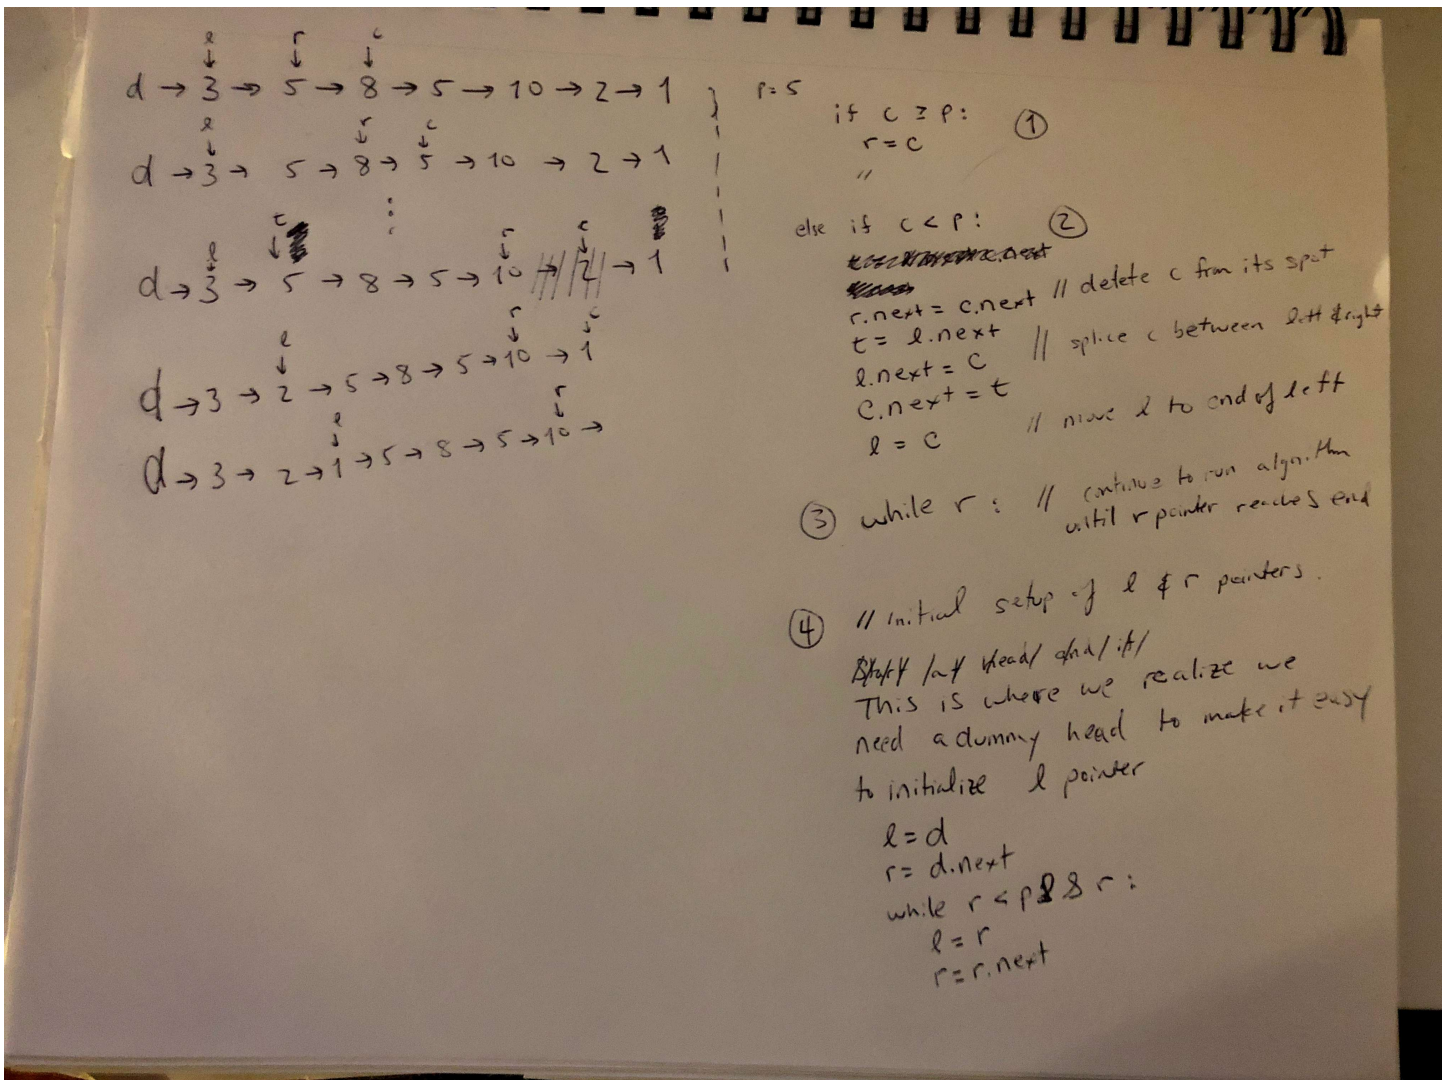 l r c
↓ ↓ ↓
d → 3 → 5 → 8 → 5 → 10 → 2 → 1
l r c
↓ ↓ ↓
d → 3 → 5 → 8 → 5 → 10 → 2 → 1
⋮
l t r c
↓ ↓ ↓ ↓
d → 3 → 5 → 8 → 5 → 10 → 2 → 1
l r c
↓ ↓ ↓
d → 3 → 2 → 5 → 8 → 5 → 10 → 1
l r
↓ ↓
d → 3 → 2 → 1 → 5 → 8 → 5 → 10 →
p = 5
if c ≥ p: ①
r = c
"
else if c < p: ②
c.next
r.next = c.next // delete c from its spot
t = l.next
l.next = c // splice c between left & right
c.next = t
l = c // move l to end of left
③ while r : // continue to run algorithm
until r pointer reaches end
④ // Initial setup of l & r pointers.
Start at head and if
This is where we realize we
need a dummy head to make it easy
to initialize l pointer
l = d
r = d.next
while r < p && r :
l = r
r = r.next